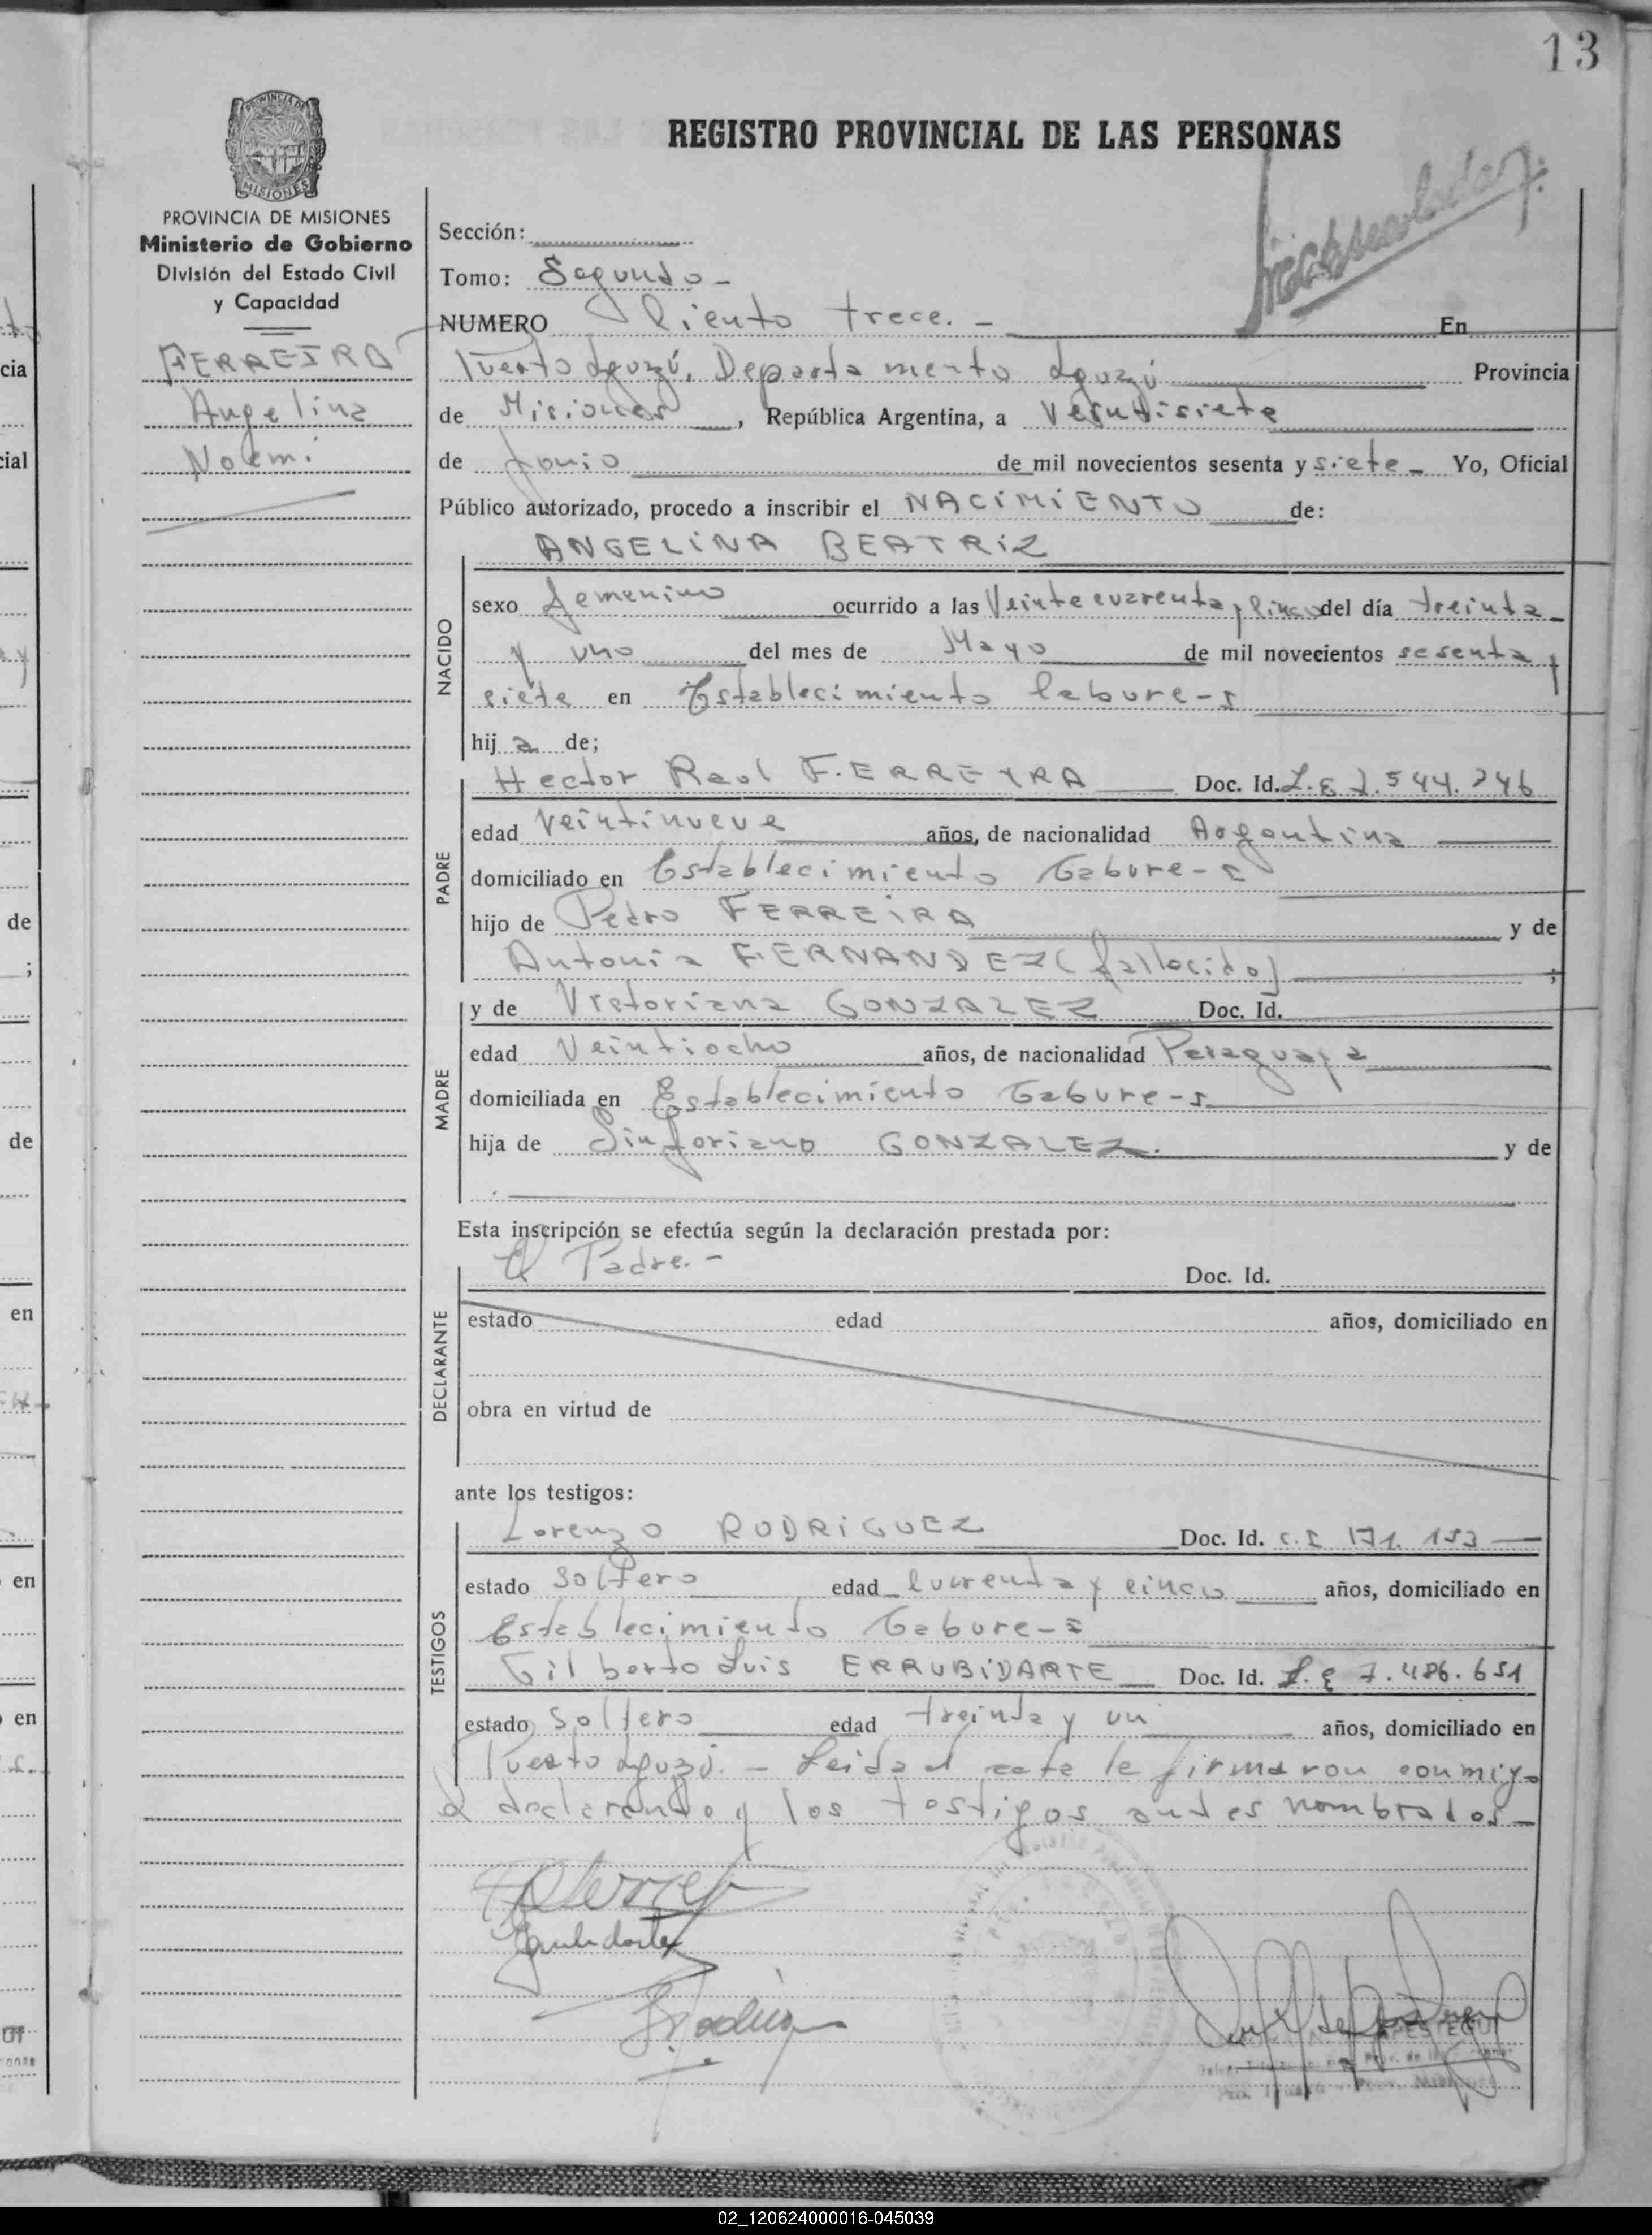 13
REGISTRO PROVINCIAL DE LAS PERSONAS
PROVINCIA DE MISIONES
MISIONES
PROVINCIA DE MISIONES
Ministerio de Gobierno
División del Estado Civil
y Capacidad
FERREIRA
Angelina
Noemi
Sección:
Tomo: Segundo -
NUMERO Ciento trece. - En
Puerto Iguazú, Departamento Iguazú Provincia
de Misiones, República Argentina, a Veintisiete
de Junio de mil novecientos sesenta y siete - Yo, Oficial
Público autorizado, procedo a inscribir el NACIMIENTO de:
ANGELINA BEATRIZ
NACIDO
sexo femenino ocurrido a las Veinte cuarenta y cinco del día treinta
y uno del mes de Mayo de mil novecientos sesenta y
siete en Establecimiento Cabure-í
hij a de;
PADRE
Hector Raul FERREYRA Doc. Id. L.E 7.544.746
edad Veintinueve años, de nacionalidad Argentina
domiciliado en Establecimiento Cabure-í
hijo de Pedro FERREIRA y de
Antonia FERNANDEZ (fallecido) ;
MADRE
y de Victoriana GONZALEZ Doc. Id.
edad Veintiocho años, de nacionalidad Paraguaya
domiciliada en Establecimiento Cabure-í
hija de Sinforiano GONZALEZ. y de
Esta inscripción se efectúa según la declaración prestada por:
DECLARANTE
El Padre. - Doc. Id.
estado edad años, domiciliado en
obra en virtud de
ante los testigos:
TESTIGOS
Lorenzo RODRIGUEZ Doc. Id. C.I 171.153
estado Soltero edad Cuarenta y cinco años, domiciliado en
Establecimiento Cabure-í
Gilberto Luis ERRUBIDARTE Doc. Id. L.E 7.486.651
estado Soltero edad treinta y un años, domiciliado en
Puerto Iguazú. - Leida el acta le firmaron conmigo
el declarante y los testigos antes nombrados -
02_120624000016-045039